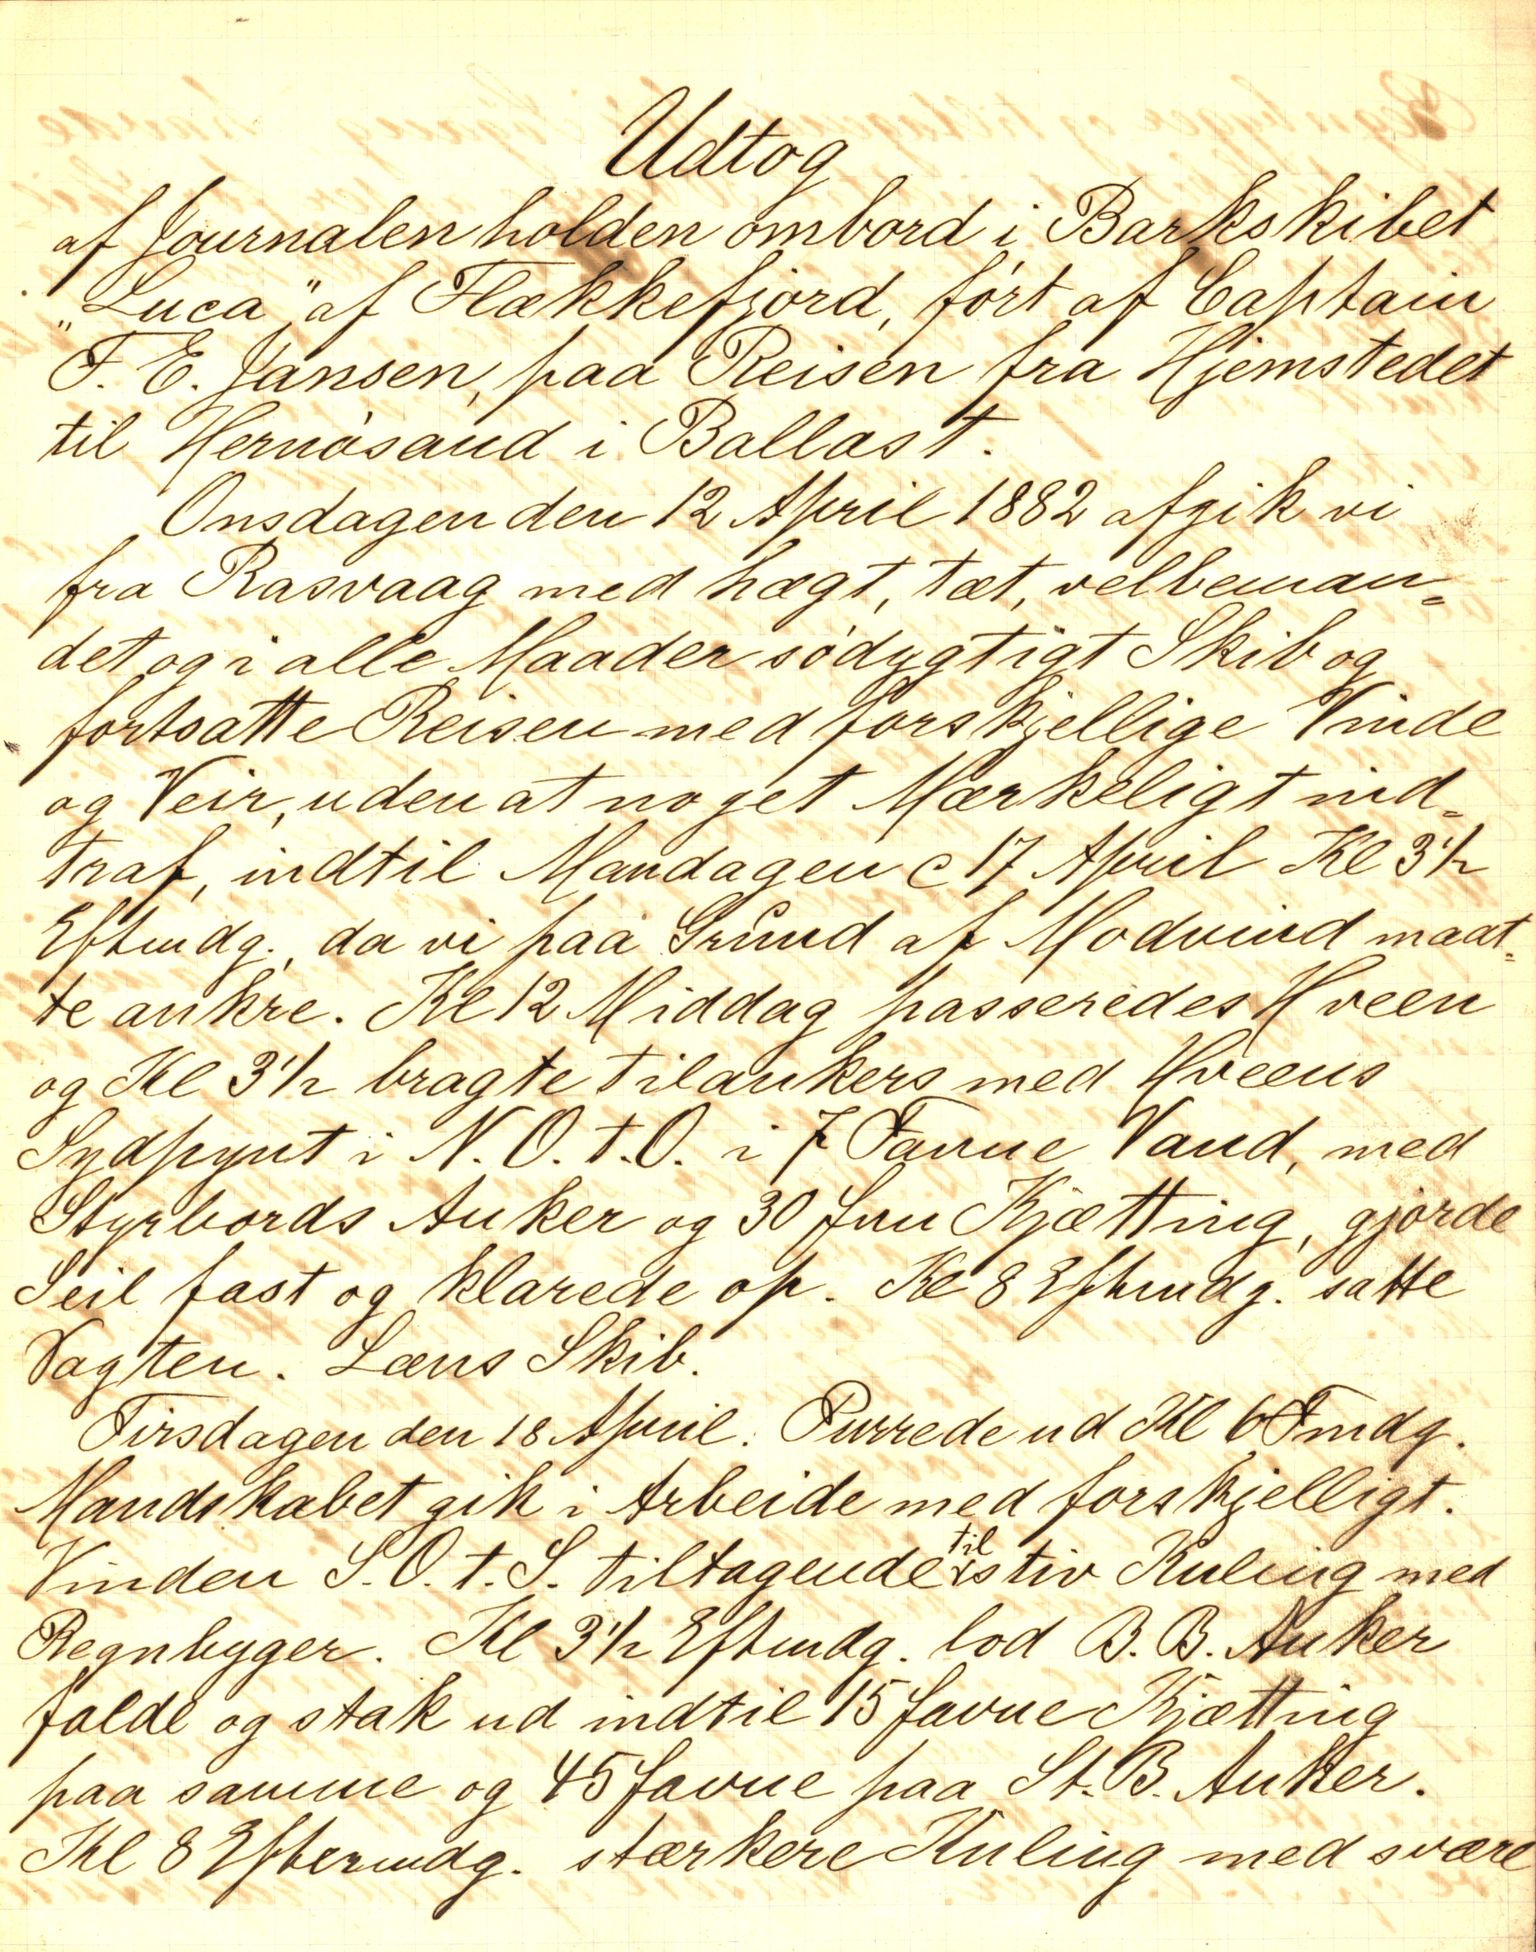 Udtog
af Journalen holden ombord i Barkskibet
„Luca" af Flækkefjord, ført af Captain
F. E. Jansen, paa Reisen fra Hjemstedet
til Hernøsand i Ballast.
Onsdagen den 12 April 1882 afgik vi
fra Rasvaag med hægt, tæt, velbeman=
det og i alle Maader sødygtigt Skib og
fortsatte Reisen med forskjellige Vinde
og Veir, uden at noget Mærkeligt ind=
traf, indtil Mandagen c 17 April Kl 3 1/2
Eftmdg., da vi paa Grund af Modvind maat=
te ankre. Kl 12 Middag passeredes Hveen
og Kl 3 1/2 bragte tilankers med Hveens
Sydpynt i N. O. t. O. i 7 Favne Vand, med
Styrbords Anker og 30 fvn Kjætting, gjorde
Seil fast og klarede op. Kl 8 Eftmdg. satte
Vagten. Læns Skib.
Tirsdagen den 18 April. Purrede ud Kl 6 Fmdg.
Mandskabet gik i Arbeide med forskjelligt.
Vinden S. O. t. S. tiltagende til stiv Kuling med
Regnbyger. Kl 3 1/2 Eftmdg. lod B. B. Anker
falde og stak ud indtil 15 favne Kjætting
paa samme og 45 favne paa St. B. Anker.
Kl 8 Eftermdg. stærkere Kuling med svære